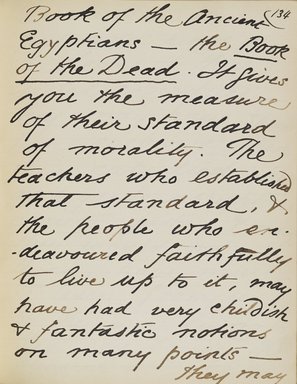 134
Book of the Ancient
Egyptians — the Book
of the Dead. It gives
you the measure
of their standard
of morality. The
teachers who established
that standard, &
the people who en-
-deavoured faithfully
to live up to it, may
have had very childish
& fantastic notions
on many points —
they may